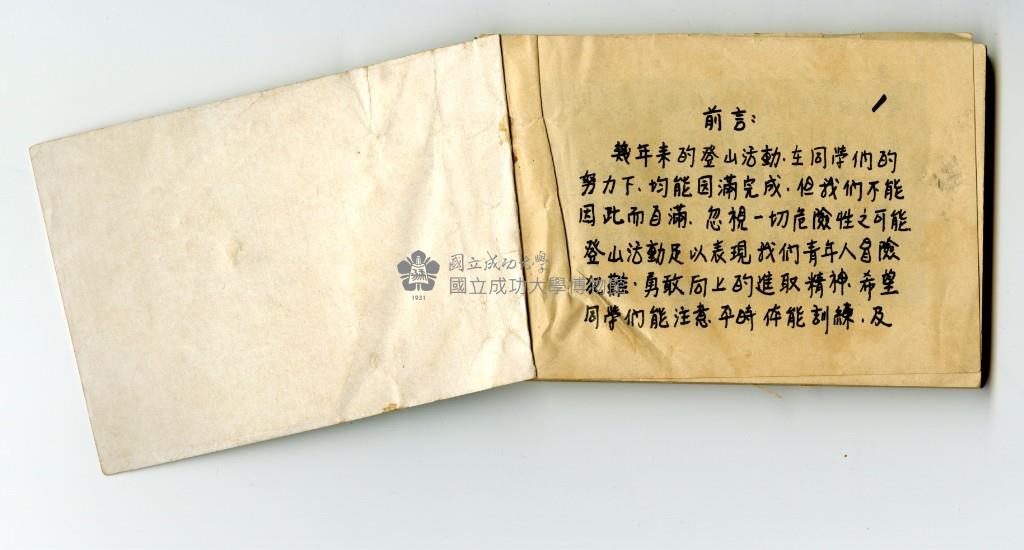 前言:
幾年來的登山活動.在同學们的
努力下.均能因滿完成.但我们不能
因此而自滿.忽視一切危險性之可能
登山活動足以表現我们青年人冒險
犯難.勇敢向上的進取精神.希望
同學们能注意平時体能訓練.及
國立成功大學
國立成功大學博物館
1931